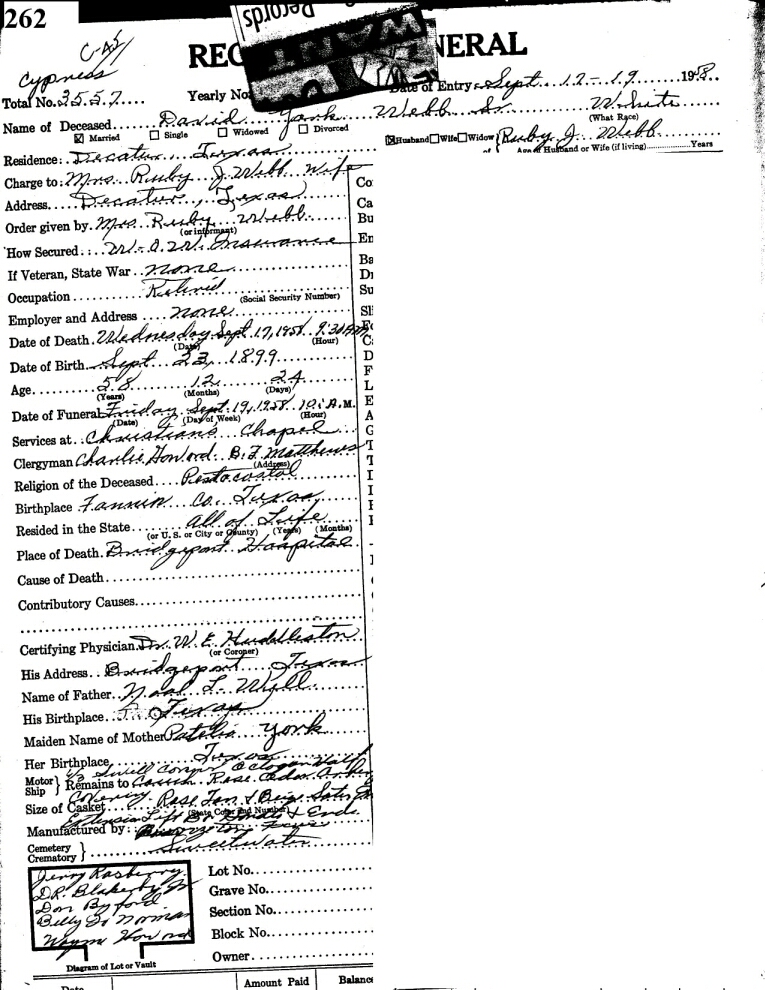 262
C-45
Cypress
Records
REC NERAL
Total No. 3557 Yearly No. Date of Entry Sept 17-19 1958
Name of Deceased David York Webb Sr. White
(What Race)
☒ Married ☐ Single ☐ Widowed ☐ Divorced ☒ Husband ☐ Wife ☐ Widow of Ruby J. Webb
Age of Husband or Wife (if living) Years
Residence: Decatur, Texas
Charge to: Mrs. Ruby J. Webb Wife
Address Decatur, Texas
Order given by Mrs Ruby Webb
(or informant)
How Secured W.O.W. Insurance
If Veteran, State War none
Occupation Retired
(Social Security Number)
Employer and Address none
Date of Death Wednesday Sept 17, 1958 9:30 AM
(Date) (Hour)
Date of Birth Sept 23, 1899
Age 58 12 24
(Years) (Months) (Days)
Date of Funeral Friday Sept. 19, 1958 10: A.M.
(Date) (Day of Week) (Hour)
Services at: Christians Chapel
Clergyman Charlie Howard B.F. Matthews
(Address)
Religion of the Deceased Pentecostal
Birthplace Fannin Co. Texas
Resided in the State all of Life
(or U. S. or City or County) (Years) (Months)
Place of Death Bridgeport Hospital
Cause of Death
Contributory Causes
Certifying Physician Dr. W. E. Huddleston
(or Coroner)
His Address Bridgeport Texas
Name of Father Noal L. Webb
His Birthplace Texas
Maiden Name of Mother York
Her Birthplace Texas
Motor
Ship } Remains to Rose Cedar
Size of Casket Covering Rose Tan & Beige
(State Color and Number)
Manufactured by:
Cemetery
Crematory } Sweetwater
Jerry Rasberry
DR. Blakerby Jr
Don Byford
Billy Jo Norman
Wayne Howard
Lot No.
Grave No.
Section No.
Block No.
Owner
Diagram of Lot or Vault
Date Amount Paid Balance